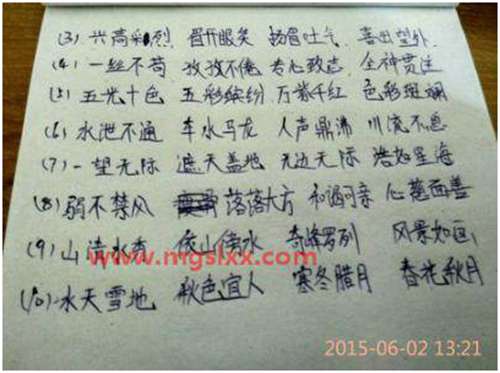 (3) 兴高彩烈 眉开眼笑 扬眉吐气 喜出望外
(4) 一丝不苟 孜孜不倦 专心致志 全神贯注
(5) 五光十色 五彩缤纷 万紫千红 色彩斑斓
(6) 水泄不通 车水马龙 人声鼎沸 川流不息
(7) 一望无际 遮天盖地 无边无际 浩如星海
(8) 弱不禁风 落落大方 和谒可亲 心慈面善
(9) 山清水秀 依山傍水 奇峰罗列 风景如画
www.mgslxx.com
(10) 水天雪地 秋色宜人 寒冬腊月 春花秋月
2015-06-02 13:21